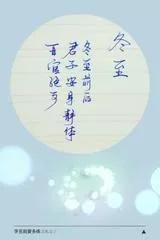 冬至
冬至前后
君子安身静体
百官绝事